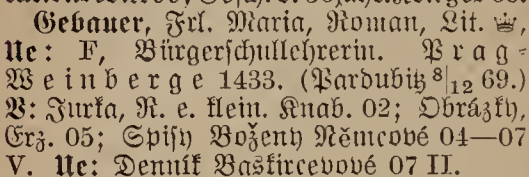 Gebauer, Frl. Maria, Roman, Lit. ♕,
Ue: F, Bürgerschullehrerin. Prag-
Weinberge 1433. (Pardubitz 8|12 69.)
V: Jurka, R. e. klein. Knab. 02; Obrázky,
Erz. 05; Spisy Boženy Němcové 04—07
V. Ue: Denník Baškircevové 07 II.